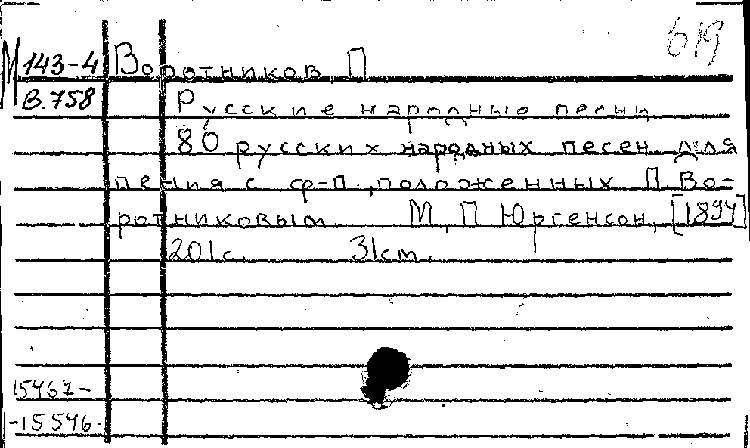 619
М 143-4 Воротников, П
В.758 Русские народные песни
80 русских народных песен для
пения с ф-п, положенных П Во-
ротниковым М, П Юргенсон, [1894]
201с. 31см.
15467-
-15546.